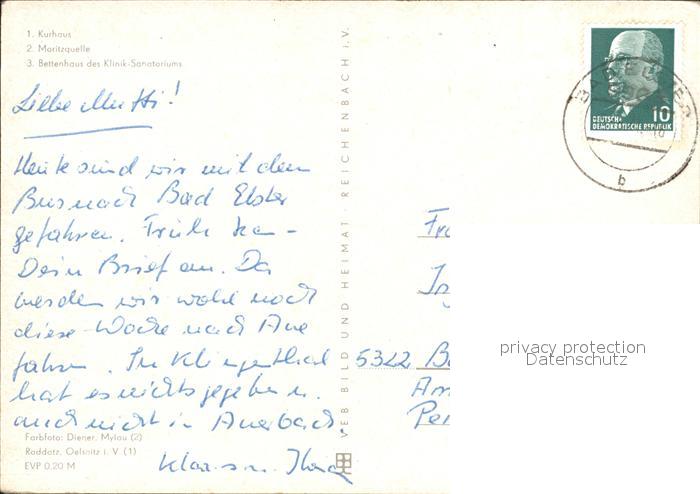 1. Kurhaus
2. Moritzquelle
3. Bettenhaus des Klinik-Sanatoriums
Liebe Mutti!
Heute sind wir mit dem
Bus nach Bad Elster
gefahren. Früh kam
Dein Brief an. Da
werden wir wohl noch
diese Woche nach Aue
fahren. In Klingenthal
hat es nichts gegeben u.
auch nicht in Auerbach.
Klaus u.
Farbfoto: Diener, Mylau (2)
Raddatz, Oelsnitz i. V. (1)
EVP 0,20 M
VEB BILD UND HEIMAT REICHENBACH i. V.
10
DEUTSCHE
DEMOKRATISCHE REPUBLIK
BAD ELSTER
b
5322
privacy protection
Datenschutz